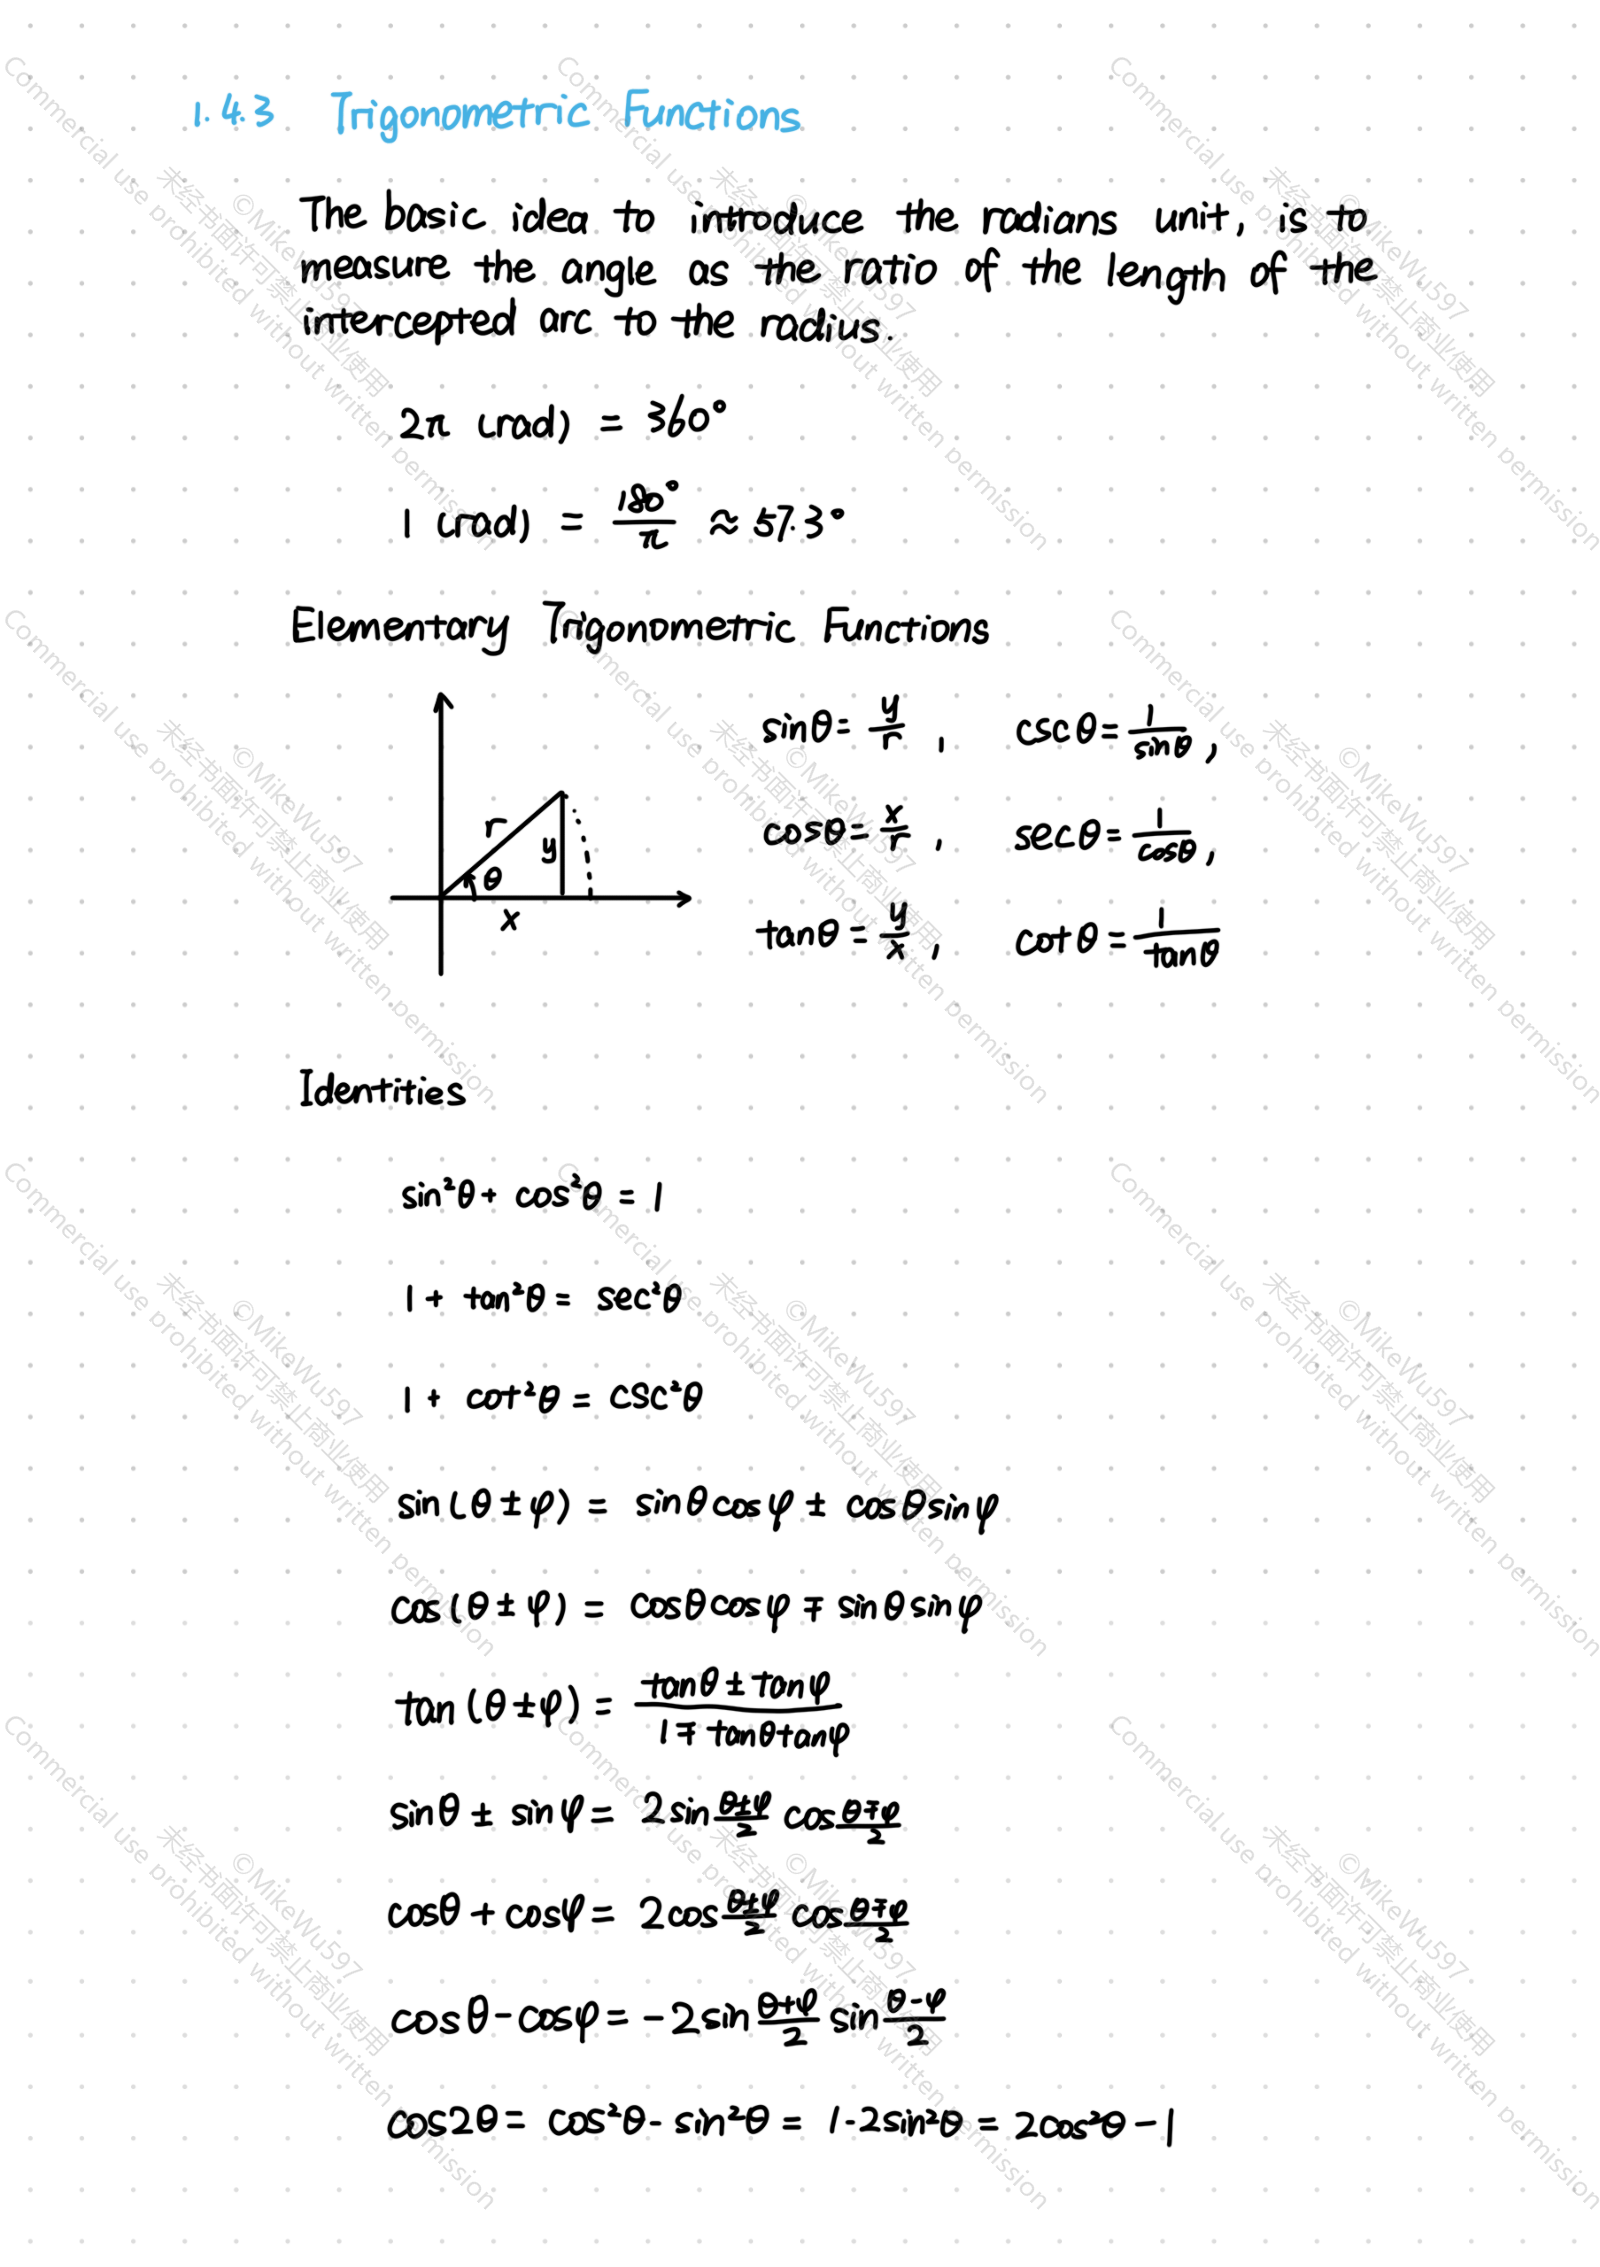 1.4.3 Trigonometric Functions
The basic idea to introduce the radians unit, is to
measure the angle as the ratio of the length of the
intercepted arc to the radius.
2π (rad) = 360°
1 (rad) = 180°/π ≈ 57.3°
Elementary Trigonometric Functions
sinθ = y/r , cscθ = 1/sinθ ,
cosθ = x/r , secθ = 1/cosθ ,
tanθ = y/x , cotθ = 1/tanθ
r
y
θ
x
Identities
sin²θ + cos²θ = 1
1 + tan²θ = sec²θ
1 + cot²θ = csc²θ
sin(θ ± φ) = sinθ cosφ ± cosθ sinφ
cos(θ ± φ) = cosθ cosφ ∓ sinθ sinφ
tan(θ ± φ) = (tanθ ± tanφ)/(1 ∓ tanθ tanφ)
sinθ ± sinφ = 2 sin (θ±φ)/2 cos (θ∓φ)/2
cosθ + cosφ = 2 cos (θ±φ)/2 cos (θ∓φ)/2
cosθ - cosφ = -2 sin (θ+φ)/2 sin (θ-φ)/2
cos2θ = cos²θ - sin²θ = 1 - 2sin²θ = 2cos²θ - 1
©MikeWu597
未经书面许可禁止商业使用
Commercial use brohibited without written bermission